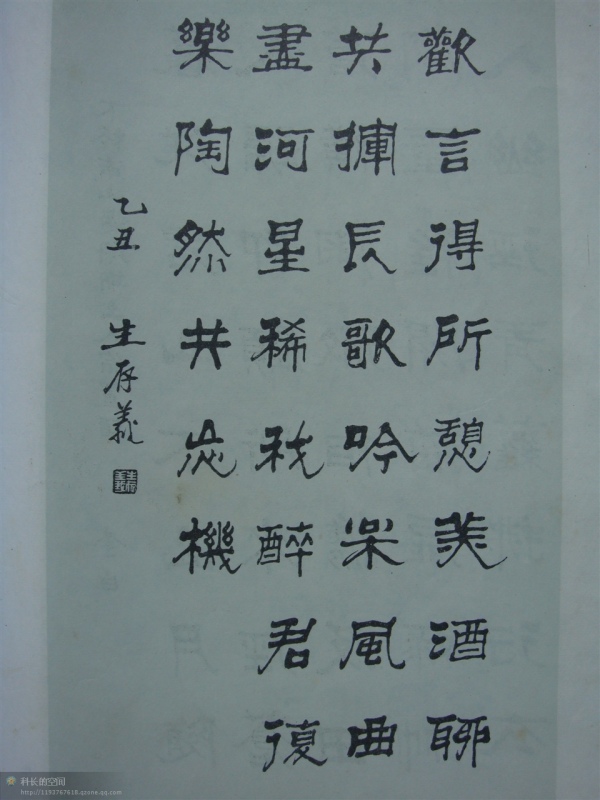 歡言得所憩美酒聊
共揮長歌吟松風曲
盡河星稀我醉君復
樂陶然共忘機
乙丑 生存義
科长的空间
http://1193767618.qzone.qq.com